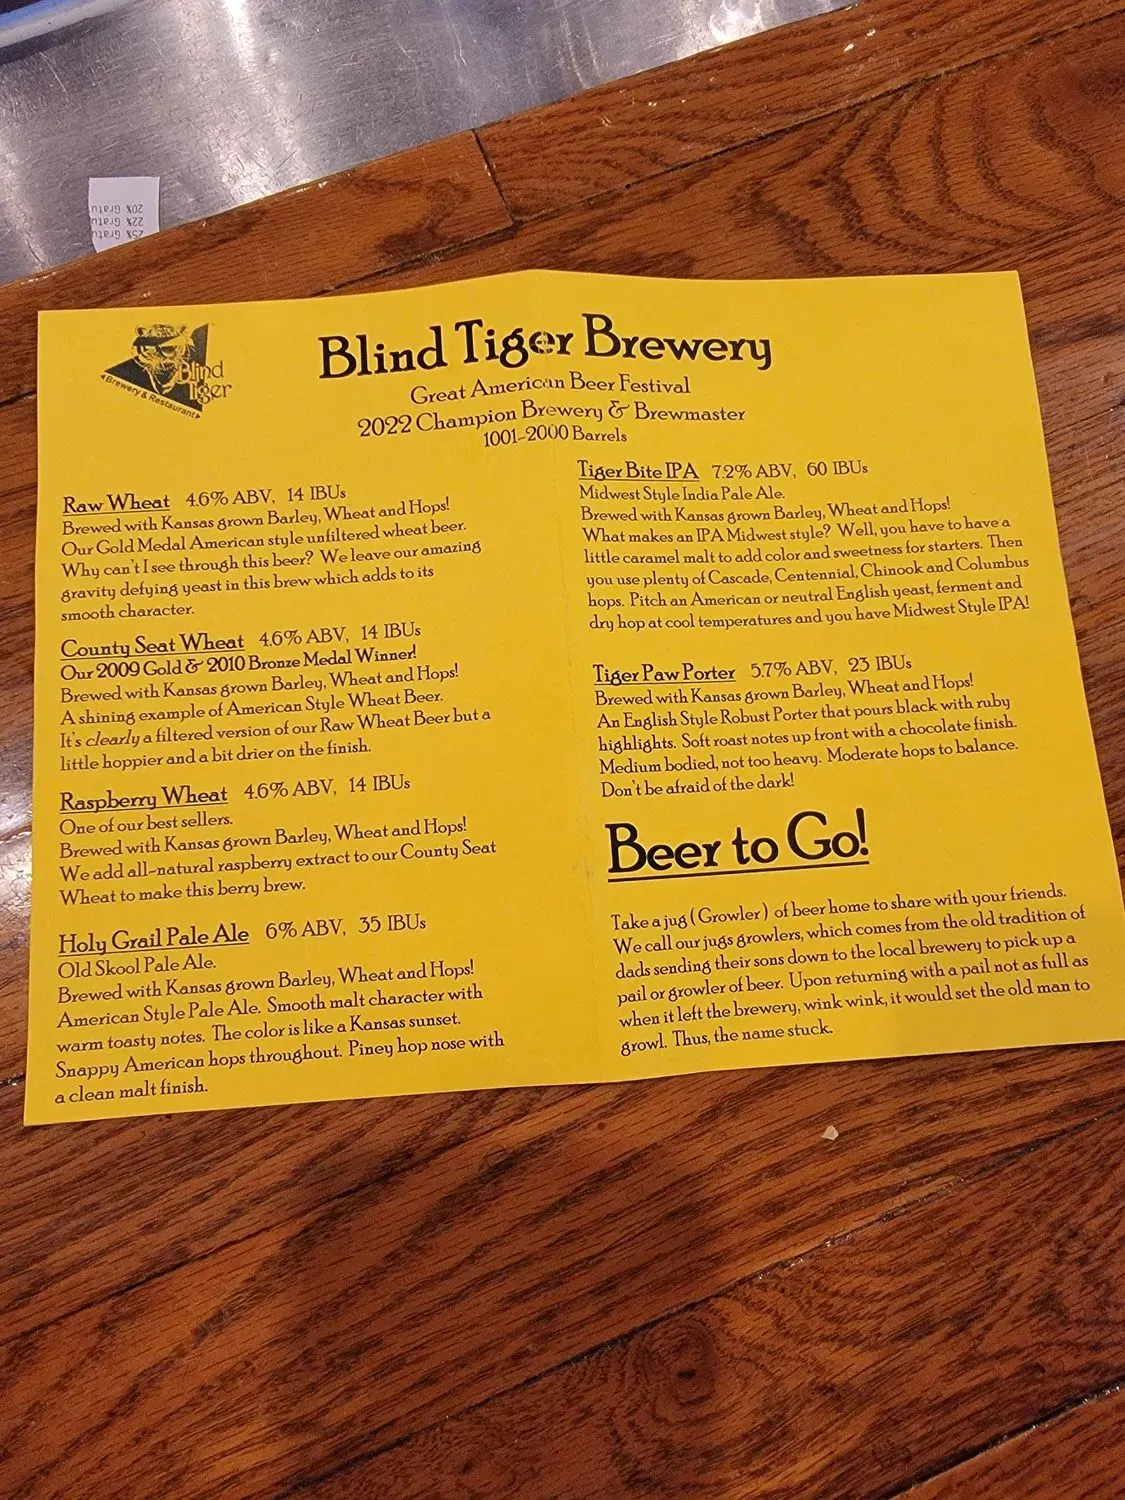 20% Gratu
22% Gratu
25% Gratu
Blind
Tiger
Brewery & Restaurant
Blind Tiger Brewery
Great American Beer Festival
2022 Champion Brewery & Brewmaster
1001-2000 Barrels
Raw Wheat 4.6% ABV, 14 IBUs
Brewed with Kansas grown Barley, Wheat and Hops!
Our Gold Medal American style unfiltered wheat beer.
Why can't I see through this beer? We leave our amazing
gravity defying yeast in this brew which adds to its
smooth character.
County Seat Wheat 4.6% ABV, 14 IBUs
Our 2009 Gold & 2010 Bronze Medal Winner!
Brewed with Kansas grown Barley, Wheat and Hops!
A shining example of American Style Wheat Beer.
It's clearly a filtered version of our Raw Wheat Beer but a
little hoppier and a bit drier on the finish.
Raspberry Wheat 4.6% ABV, 14 IBUs
One of our best sellers.
Brewed with Kansas grown Barley, Wheat and Hops!
We add all-natural raspberry extract to our County Seat
Wheat to make this berry brew.
Holy Grail Pale Ale 6% ABV, 35 IBUs
Old Skool Pale Ale.
Brewed with Kansas grown Barley, Wheat and Hops!
American Style Pale Ale. Smooth malt character with
warm toasty notes. The color is like a Kansas sunset.
Snappy American hops throughout. Piney hop nose with
a clean malt finish.
Tiger Bite IPA 7.2% ABV, 60 IBUs
Midwest Style India Pale Ale.
Brewed with Kansas grown Barley, Wheat and Hops!
What makes an IPA Midwest style? Well, you have to have a
little caramel malt to add color and sweetness for starters. Then
you use plenty of Cascade, Centennial, Chinook and Columbus
hops. Pitch an American or neutral English yeast, ferment and
dry hop at cool temperatures and you have Midwest Style IPA!
Tiger Paw Porter 5.7% ABV, 23 IBUs
Brewed with Kansas grown Barley, Wheat and Hops!
An English Style Robust Porter that pours black with ruby
highlights. Soft roast notes up front with a chocolate finish.
Medium bodied, not too heavy. Moderate hops to balance.
Don't be afraid of the dark!
Beer to Go!
Take a jug (Growler) of beer home to share with your friends.
We call our jugs growlers, which comes from the old tradition of
dads sending their sons down to the local brewery to pick up a
pail or growler of beer. Upon returning with a pail not as full as
when it left the brewery, wink wink, it would set the old man to
growl. Thus, the name stuck.